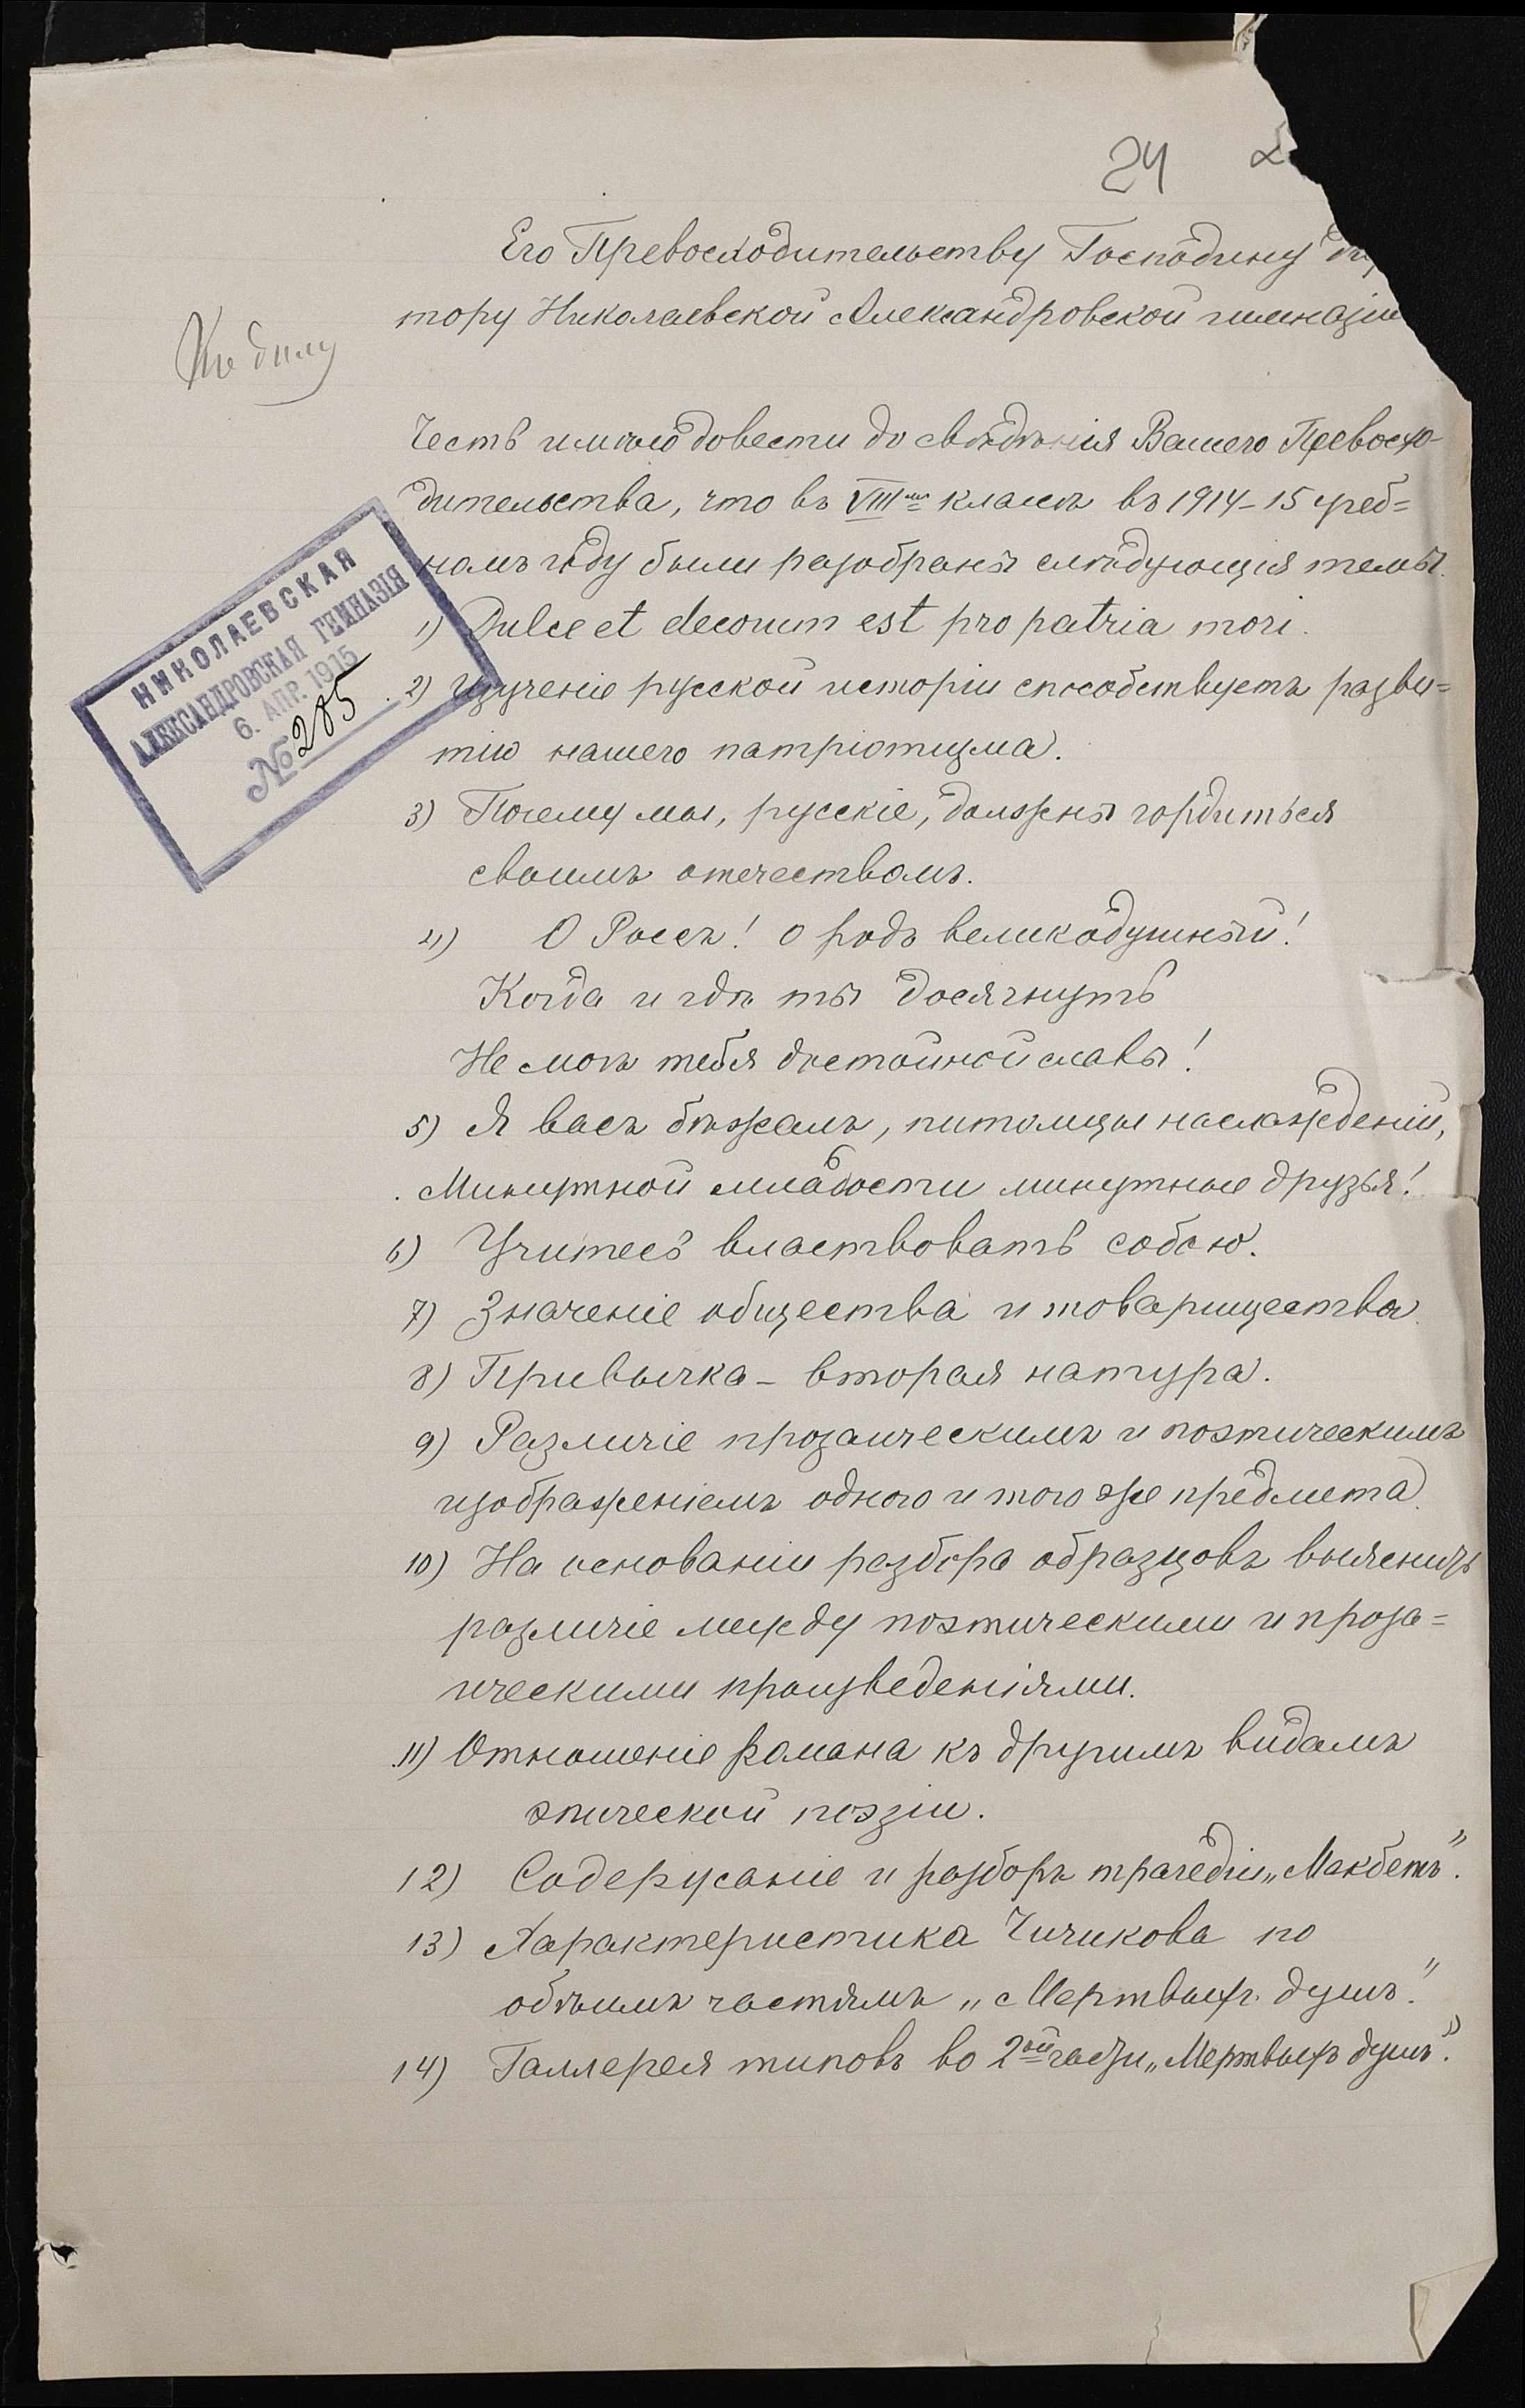 24
Его Превосходительству Господину Ди
тору Николаевской Александровской гимназіи
Къ дѣлу
Честь имѣю довести до свѣдѣнія Вашего Превосхо-
дительства, что въ VIIIмъ классѣ въ 1914-15 учеб=
номъ году были разобраны слѣдующія темы.
НИКОЛАЕВСКАЯ
АЛЕКСАНДРОВСКАЯ ГИМНАЗІЯ
6. АПР. 1915
№ 285
1) Dulce et decorum est pro patria mori.
2) Изученіе русской исторіи способствуетъ разви=
тію нашего патріотизма.
3) Почему мы, русскіе, должны гордиться
своимъ отечествомъ.
4) О Россъ! о родъ великодушный!
Когда и гдѣ ты досягнуть
Не могъ тебя достойной славы!
5) Я васъ бѣжалъ, питомцы наслажденій,
Минутной младости минутные друзья!
6) Учитесь властвовать собою.
7) Значеніе общества и товарищества.
8) Привычка - вторая натура.
9) Различіе прозаическимъ и поэтическимъ
изображеніемъ одного и того же предмета.
10) На основаніи разбора образцовъ выяснить
различіе между поэтическими и проза=
ическими произведеніями.
11) Отношеніе романа къ другимъ видамъ
эпической поэзіи.
12) Содержаніе и разборъ трагедіи „Макбетъ".
13) Характеристика Чичикова по
обѣимъ частямъ „Мертвыхъ душъ".
14) Галлерея типовъ во 2ой части „Мертвыхъ душъ".